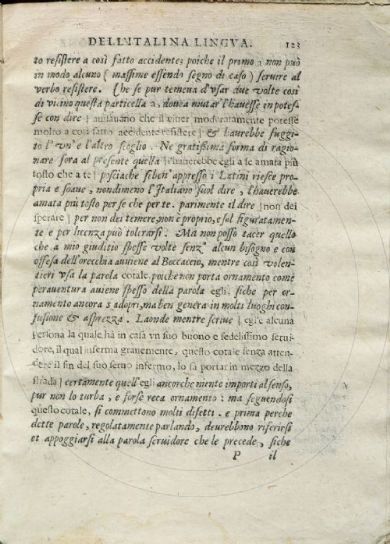 DELL'ITALINA LINGVA. 123
to resistere a così fatto accidente: poiche il primo a non può
in modo alcuno (massime essendo segno di caso) seruire al
verbo resistere. Che se pur temeua d'vsar due volte così
di vicino questa particella a, doueua mutar l'hauesse in potesse
se con dire | auisauano che il viuer moderatamente potesse
molto a così fatto accidente resistere | & haurebbe suggito
l'vn' e l'altro scoglio. Ne gratissima forma di ragionare
sora al presente quella | l'hauerebbe egli a se amata più
tosto che a te | posciache siben' appresso i Latini riesce propria
e soaue, nondimeno l'Italiano suol dire, l'hauerebbe
amata più tosto per se che per te. parimente il dire | non dei
sperare | per non dei temere, non è proprio, e sol figuratamente
e per licenza può tolerarsi. Ma non posso tacer quello
che a mio giuditio spesse volte senz' alcun bisogno e con
offesa dell'orecchia auiene al Boccaccio, mentre così volentieri
vsa la parola cotale, poiche non porta ornamento come
perauentura auiene spesso della parola egli, siche per ornamento
ancora s'adopri, ma ben genera in molti luoghi confusione
& asprezza. Laonde mentre scriue | egli è alcuna
persona la quale hà in casa vn suo buono e fedelissimo seruidore,
il qual inferma grauemente, questo cotale senza attendere
il fin del suo seruo infermo, lo fà portar in mezzo della
strada | certamente quell' egli ancorche niente importi al senso,
pur non lo turba, e forsè reca ornamento: ma seguendosi
questo cotale, si commettono molti difetti. e prima perche
dette parole, regolatamente parlando, deurebbono riferirsi
et appoggiarsi alla parola seruidore che le precede, siche
P il